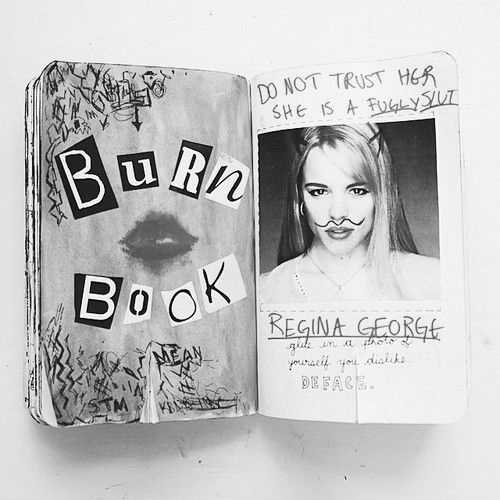 BURN
BOOK
MEAN
STM
DO NOT TRUST HER
SHE IS A FUGLY SLUT
REGINA GEORGE
glue in a photo of
yourself you dislike.
DEFACE.